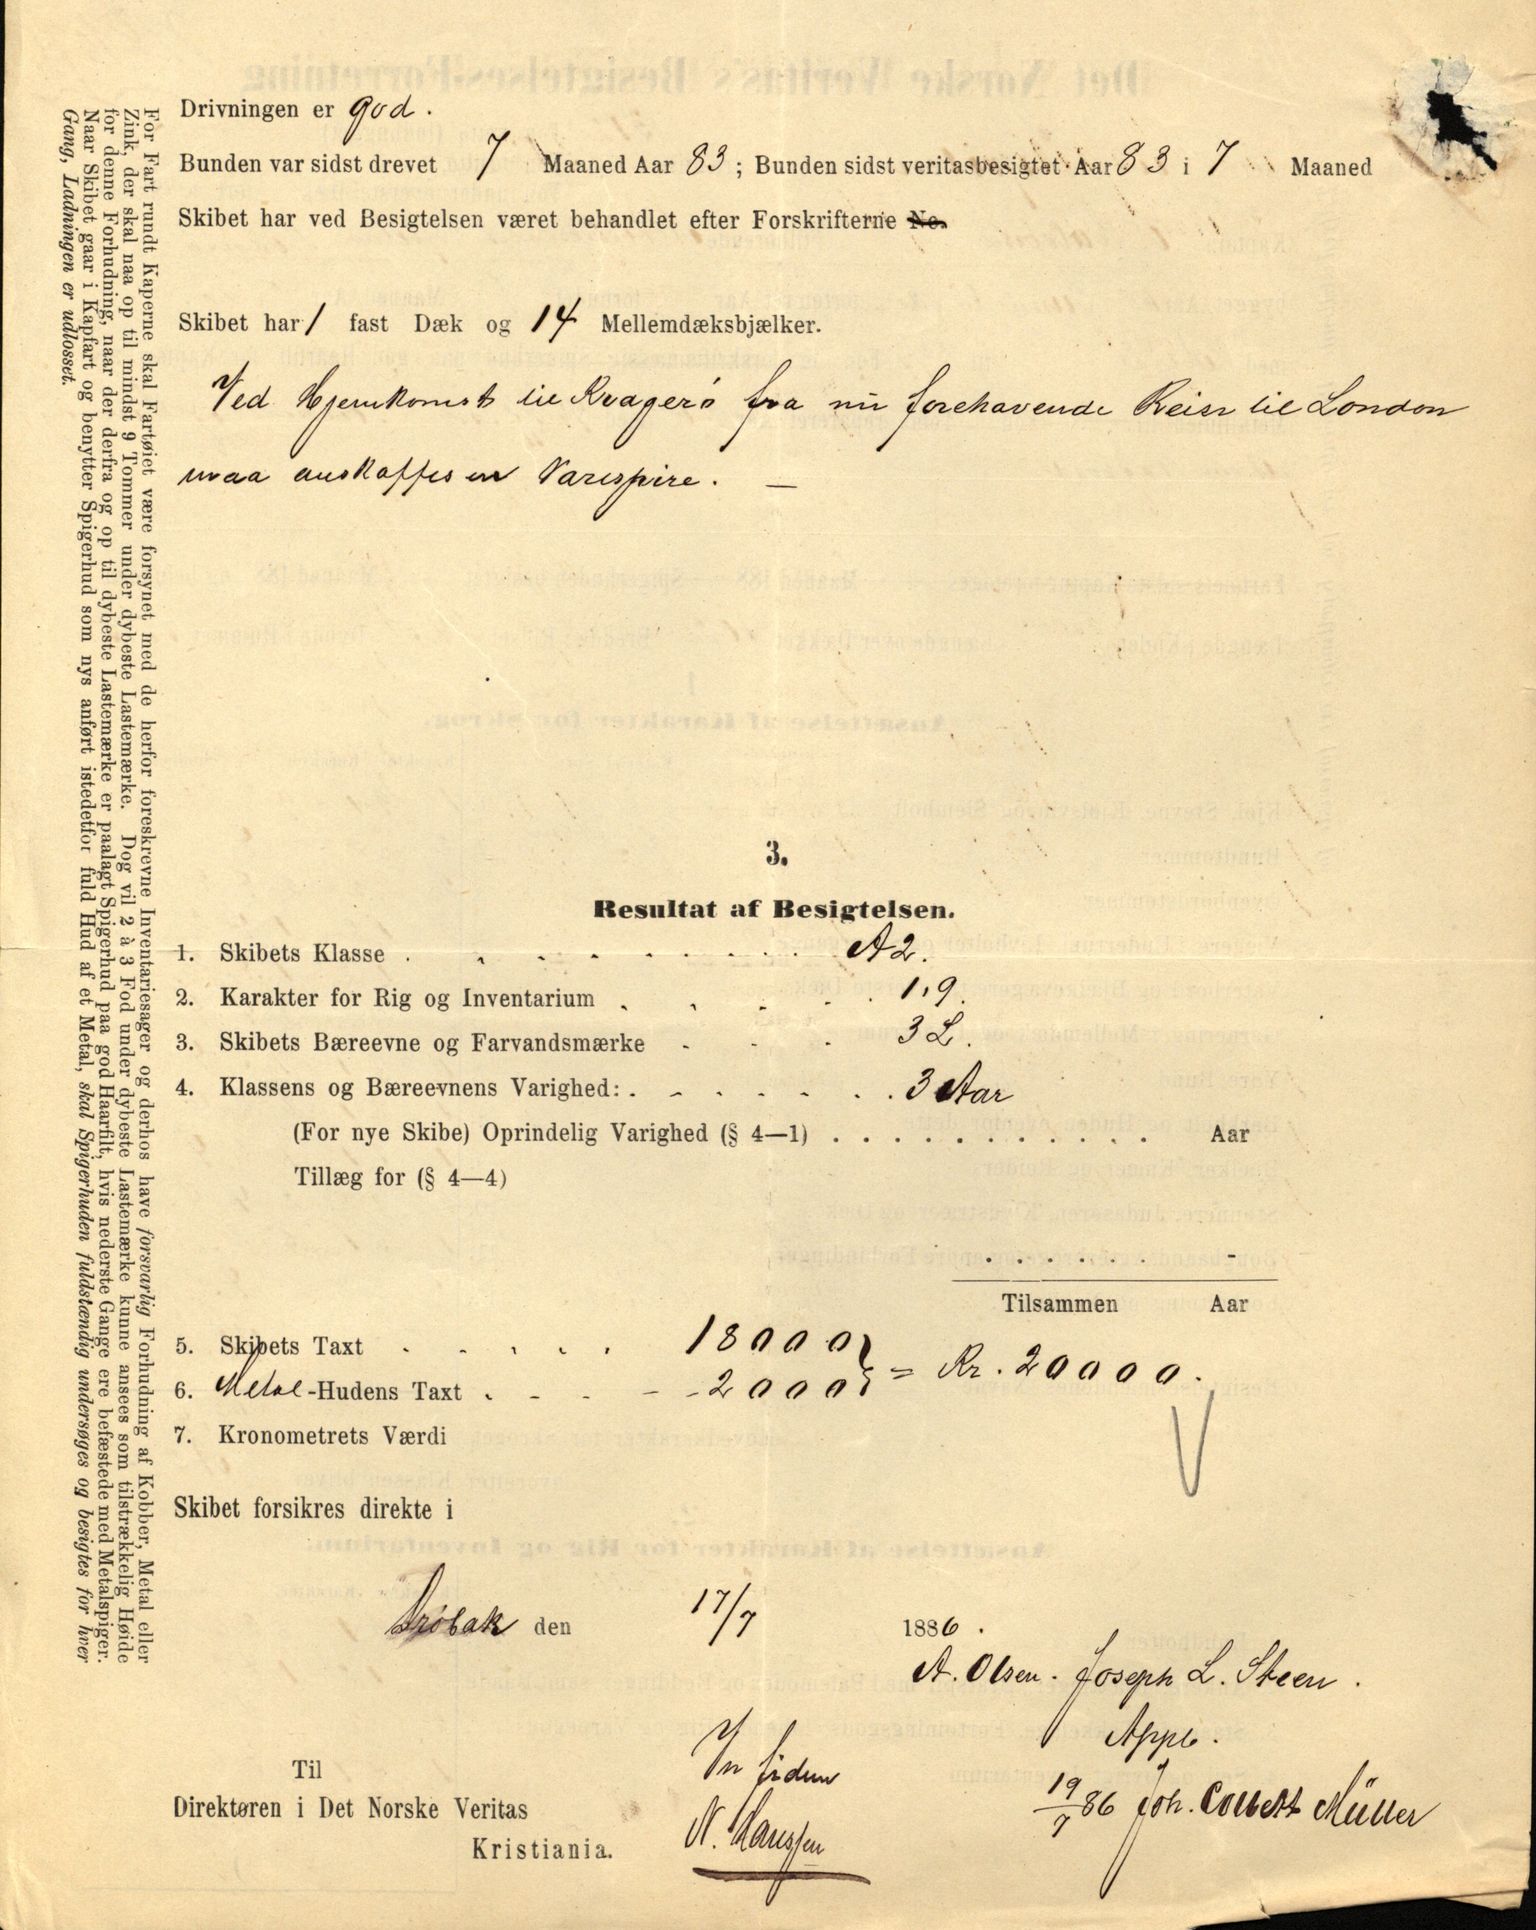 Drivningen er god.
Bunden var sidst drevet 7 Maaned Aar 83; Bunden sidst veritasbesigtet Aar 83 i 7 Maaned
Skibet har ved Besigtelsen været behandlet efter Forskrifterne No.
Skibet har 1 fast Dæk og 14 Mellemdæksbjælker.
Ved Hjemkomst til Kragerö fra nu forehavende Reise til London
maa anskaffes en Varespire. —
3.
Resultat af Besigtelsen.
1. Skibets Klasse . . . . . . . . A2.
2. Karakter for Rig og Inventarium . . . . . 1,9.
3. Skibets Bæreevne og Farvandsmærke . . . 3 L.
4. Klassens og Bæreevnens Varighed: . . . . . . . 3 Aar
(For nye Skibe) Oprindelig Varighed (§ 4—1) . . . . . . . . . . . . Aar
Tillæg for (§ 4—4)
. . . . . . -
Tilsammen Aar
5. Skibets Taxt . . . . . 18000
6. Metal-Hudens Taxt . . . . . 2000 } = Kr. 20000.
7. Kronometrets Værdi
Skibet forsikres direkte i
Dröbak den 17/7 1886.
A. Olsen. Joseph L. Steen.
In fidem
Appb.
Til
Direktøren i Det Norske Veritas
Kristiania.
N. Hanssen
19/7 86 Joh. Collett Müller
For Fart rundt Kaperne skal Fartøiet være forsynet med de herfor foreskrevne Inventariesager og derhos have forsvarlig Forhudning af Kobber, Metal eller
Zink, der skal naa op til mindst 9 Tommer under dybeste Lastemærke. Dog vil 2 à 3 Fod under dybeste Lastemærke kunne ansees som tilstrækkelig Høide
for denne Forhudning, naar der derfra og op til dybeste Lastemærke er paalagt Spigerhud paa god Haarfilt, hvis nederste Gange ere befæstede med Metalspiger.
Naar Skibet gaar i Kapfart og benytter Spigerhud som nys anført istedetfor fuld Hud af et Metal, skal Spigerhuden fuldstændig undersøges og besigtes for hver
Gang, Ladningen er udlosset.